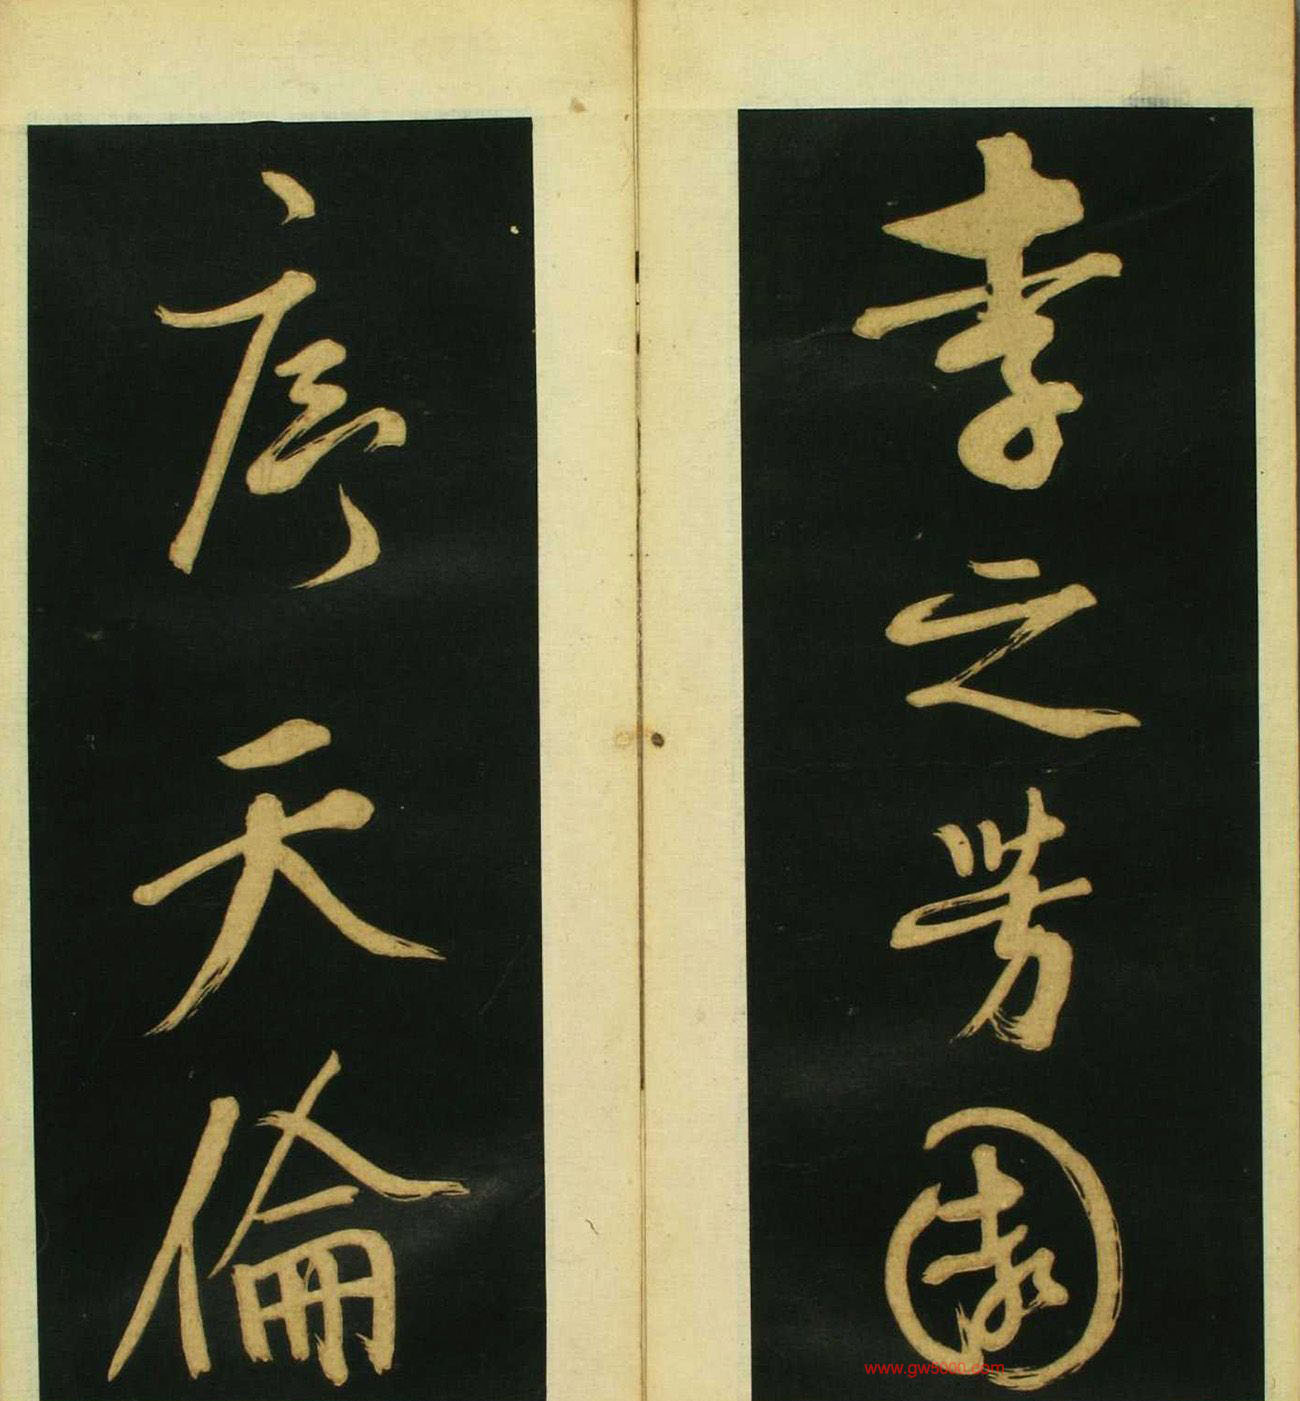 李之芳園
序天倫
www.gw5000.com